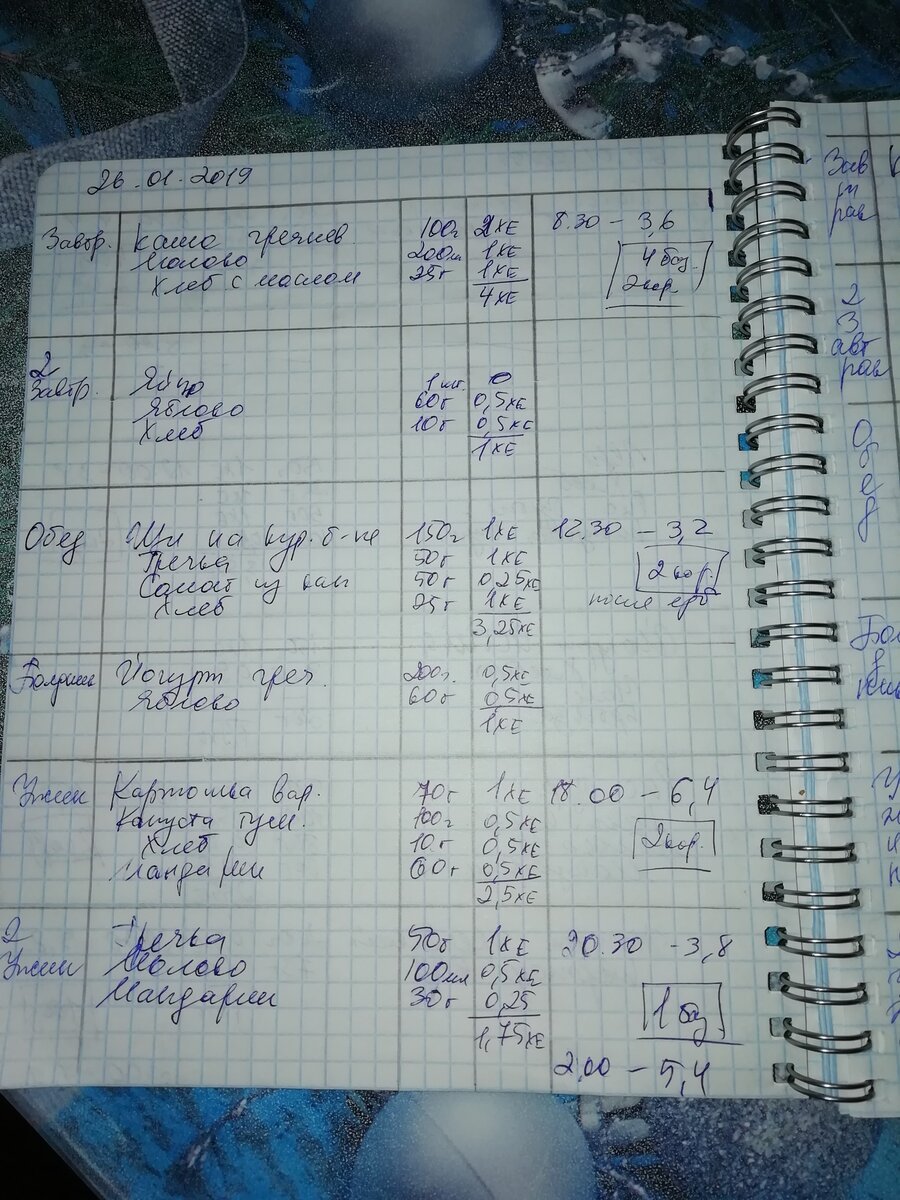 26.01.2019
Завтр. Каша гречнев. 100г 2ХЕ 8.30 - 3,6
Молоко 200мл 1ХЕ 4 баз.
Хлеб с маслом 25г 1ХЕ 2 кор.
4ХЕ
2
Завтр. Яйцо 1 шт. 0
Яблоко 60г 0,5ХЕ
Хлеб 10г 0,5ХЕ
1ХЕ
Обед Щи на кур. б-не 150г 1ХЕ 12.30 - 3,2
Гречка 50г 1ХЕ 2 кор.
Салат из кап 50г 0,25ХЕ после еды
Хлеб 25г 1ХЕ
3,25ХЕ
Полдник Йогурт греч. 200г. 0,5ХЕ
Яблоко 60г 0,5ХЕ
1ХЕ
Ужин Картошка вар. 70г 1ХЕ 18.00 - 6,4
Капуста туш. 100г 0,5ХЕ 2 кор.
Хлеб 10г 0,5ХЕ
Мандарин 60г 0,5ХЕ
2,5ХЕ
2
Ужин Гречка 50г 1ХЕ 20.30 - 3,8
Молоко 100мл 0,5ХЕ
Мандарин 30г 0,25 1 баз
1,75ХЕ
2,00 - 5,4
Зав
тр
рак
2
З
авт
рак
О
б
е
д